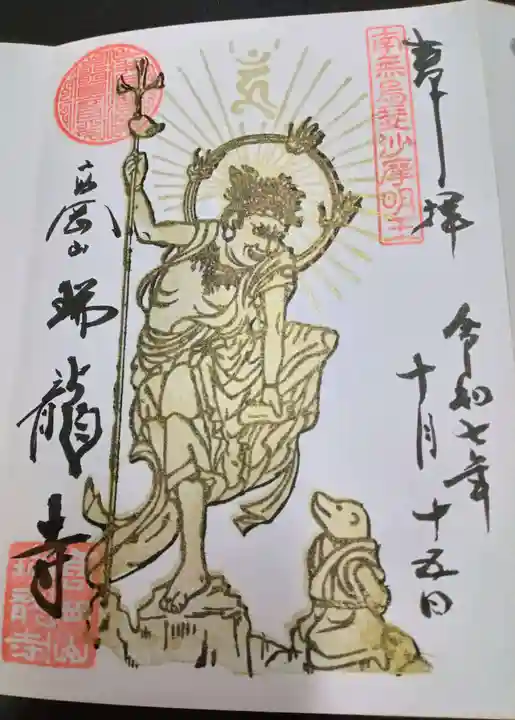 奉拝
南無烏蒭沙摩明王
令和七年
十月十五日
高岡山
瑞龍寺
高岡山
瑞龍寺